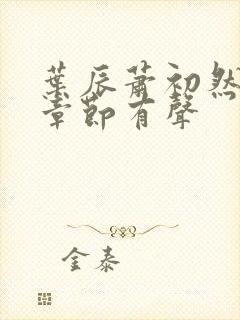 葉辰蕭初然
章節有聲
金泰